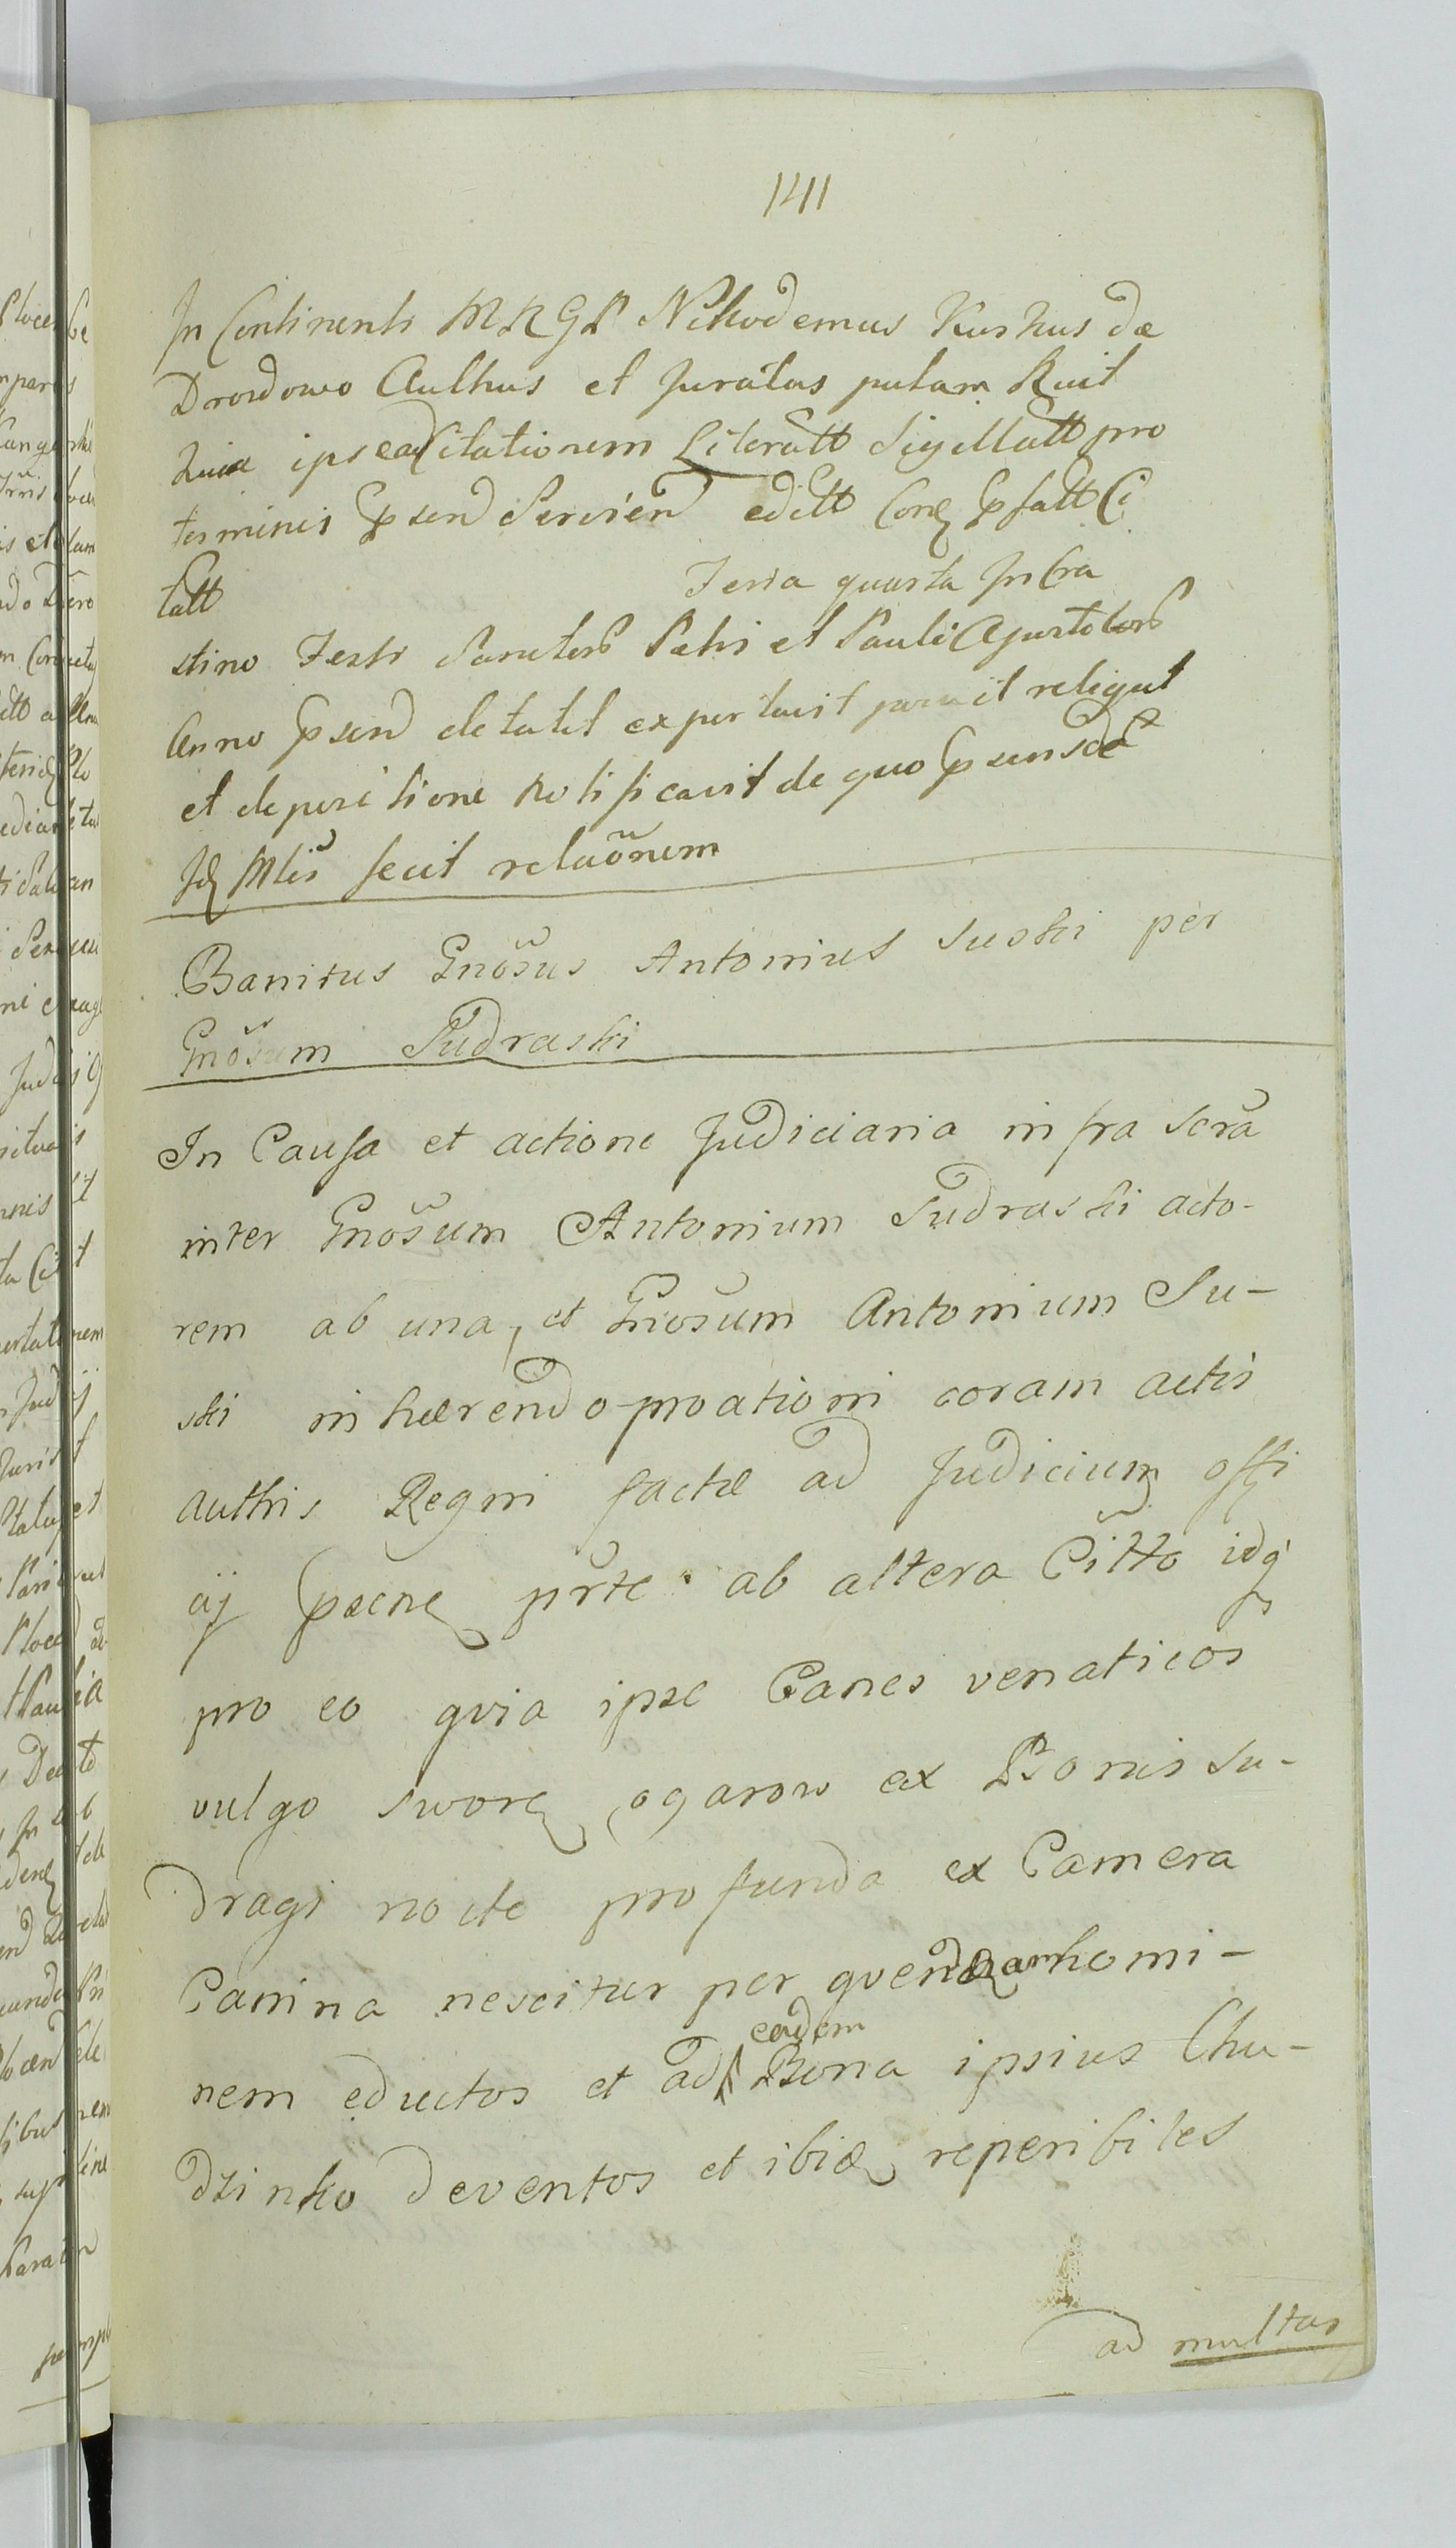 1411
In Continenti M R G P Nikodemus Kuskus de
Drozdowo Authus et Juratus putam Rcit
huia ipse ead Citationem Literatt Sigillatt pro
terminis Gpsend Servien editt Conq Gpfatt Ci
tatt Feria quarta In Cra
stino Festi Sanctorb Petri et Pauli Apostolorb
Anno Gpsend detulit exportavit posuit reliquit
et depositione Notificavit de quo Gpsens
Jdq Mlis fecit relaõnem
Banitus Gnõsus Antonius Suski per
Gnõsum Sudraski
In Causa et actione Judiciaria infra scrã
inter Gnõsum Antonium Sudraski acto-
rem ab una, et Gnosum Antonium Su-
ski inhærendo proationi coram actis
authis Regni factæ ad Judicium offi
cij Gpsens prte ab altera Citto idq
pro eo qvia ipse Canes venaticos
vulgo sworę ogarow ex Bonis Su-
dragi nocte profunda ex Camera
Canina nescitur per qvendam homi-
nem eductos et ad eadem Bona ipsius Chu-
dzinko deventos et ibidq reperibiles
ad multas